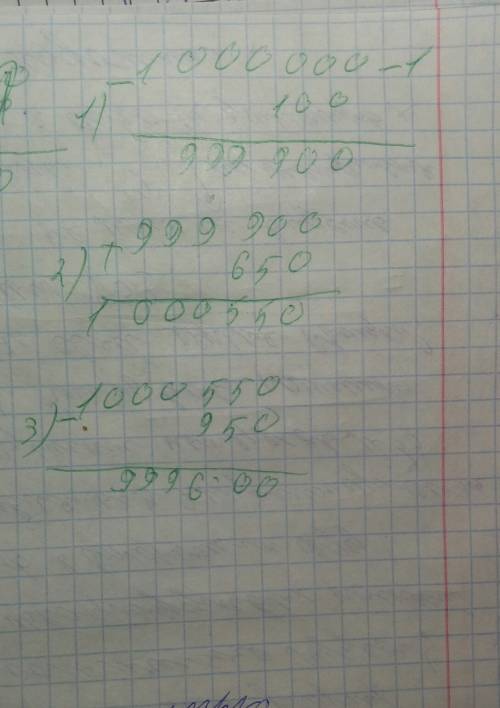 1) - 1 000 000 - 1
100
999 900
2) + 999 900
650
1 000 550
3) - 1000 550
950
999 600